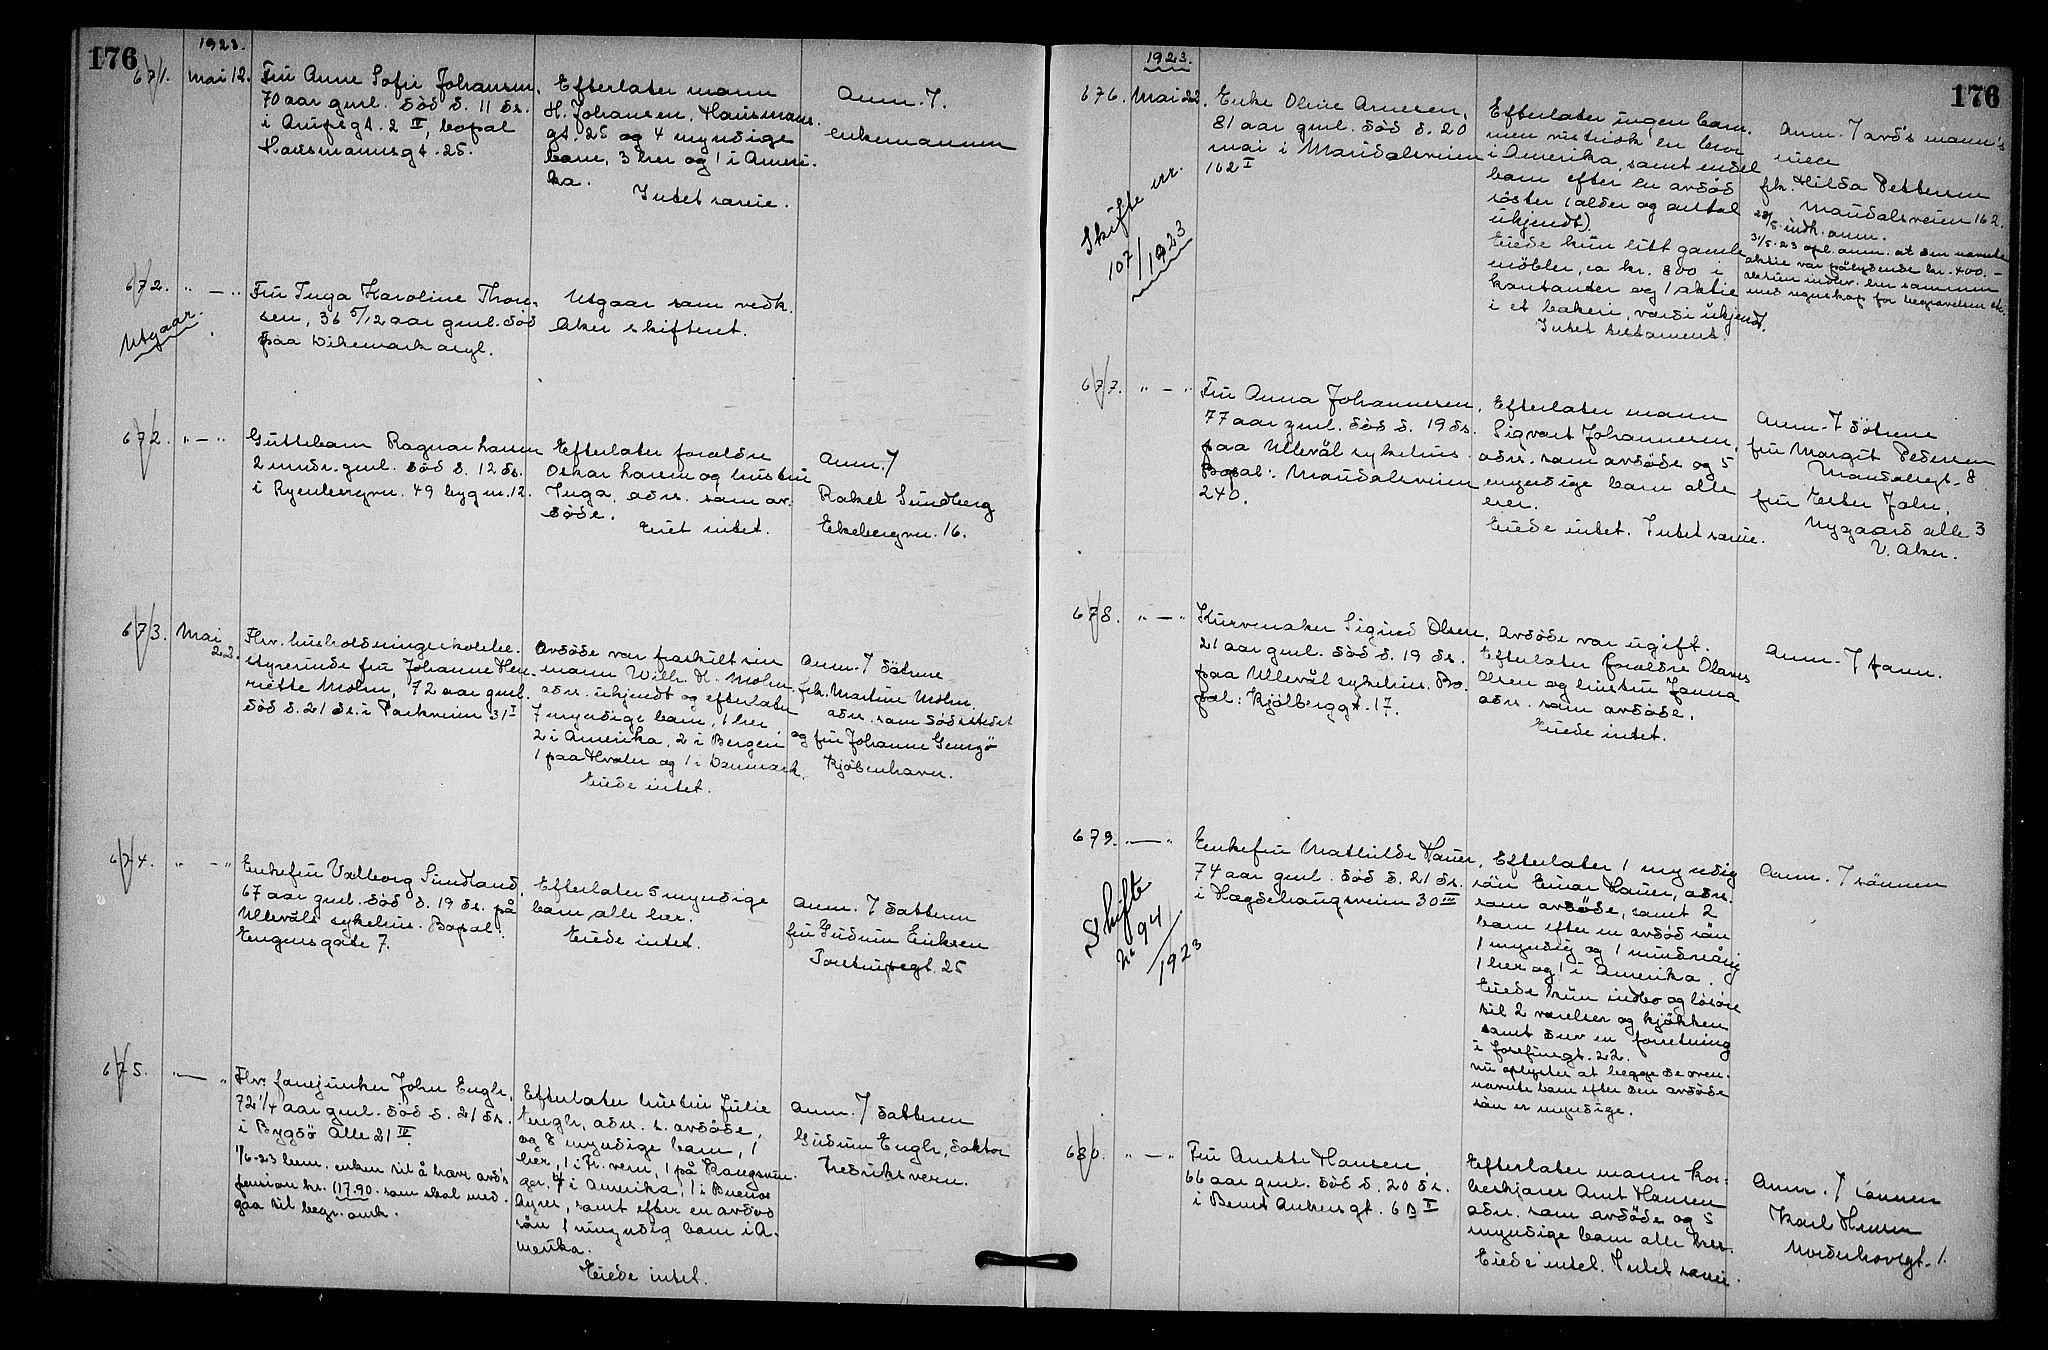 176
1923.
671. Mai 12.
Fru Anne Sofie Johansen,
70 aar gml. död d. 11 ds.
2 II, bopal
Hausmannsgt. 25.
Efterlater mann
H. Johansen, Hausmans
gt. 25 og 4 myndige
barn, 3 her og 1 i Ameri-
ka.
Intet særeie.
Anm. J.
enkemannen
672. " — "
Utgaar.
Fru Inga Karoline Thor-
sen, 36 5/12 aar gml. död
paa Dikemark asyl.
Utgaar som vedk.
Aker skifteret.
672. " — "
Guttebarn Ragnar Larsen
2 mndr. gml. död d. 12 ds.
i Ryenbergvn. 49 bygn. 12.
Efterlater foreldre
Oskar Larsen og hustru
Inga, adrs. som av-
döde.
Eiet intet.
Anm. J
Rakel Sundberg
Ekebergvn. 16.
673. Mai
22.
Fhv. husholdningsskolebe-
styrerinde fru Johanne Hen-
riette Mohn, 72 aar gml.
död d. 21 ds. i Parkveien 31 I
Avdöde var fraskilt sin
mann Wilh. H. Mohn,
adrs. ukjendt og efterlater
7 myndige barn, 1 her
2 i Amerika, 2 i Bergen
1 paa Hvaler og 1 i Danmark.
Eiede intet.
Anm. J dötrene
frk. Martine Mohn,
adrs. som dödsstedet
og fru Johanne
Kjöbenhavn.
674. " — "
Enkefru Valborg Sundland,
67 aar gml. död d. 19 ds. på
Ullevåls sykehus. Bopal:
Eugensgate 7.
Efterlater 5 myndige
barn alle her.
Eiede intet.
Anm. J datteren
fru Gudrun Eriksen
Torstrupsgt. 25
675. " — "
Fhv. fanejunker John Engh,
72 1/4 aar gml. död d. 21 ds.
i Bygdö Alle 21 IV.
1/6-23 bem. enken til å hæve avd's
pension kr. 117.90 som skal med-
gaa til begr. omk.
Efterlater hustru Julie
Engh, adrs. s. avdöde,
og 8 myndige barn, 1
her, 1 i Fr.vern, 1 på Kongsvin-
ger, 4 i Amerika, 1 i Buenos
Ayres, samt efter en avdöd
sön 1 myndig barn i A-
merika.
Eiede intet.
Anm. J datteren
Gudrun Engh, doktor
Fredriksvern.
176
1923.
676. Mai 22.
Skifte nr.
107/1923
Enke Oline Arnesen,
81 aar gml. död d. 20
mai i Maridalsveien
162 I
Efterlater ingen barn
men vistnok en bror
i Amerika, samt endel
barn efter en avdöd
söster (alder og antal
ukjendt).
Eiede kun litt gamle
möbler, ca kr. 800 i
kontanter og 1 aktie
i et bakeri, værdi ukjendt.
Intet testament.
Anm. J avd's mann's
niece
frk. Hilda Pettersen
Maridalsveien 162.
28/5 indk. anm.
31/5-23 opl. anm. at den nævnte
aktie var pålydende kr. 400.-
med regnskap for begravelsen etc.
677. " — "
Fru Anna Johannesen,
77 aar gml. död d. 19 ds.
paa Ullevål sykehus.
Bopal: Maridalsveien
240.
Efterlater mann
Sigvart Johannesen,
adrs. som avdöde og 5
myndige barn alle
her.
Eiede intet. Intet særeie.
Anm. J dötrene
fru Margit Pedersen
Maridalsgt. 8
fru Ester Jahr,
Nygaard alle 3
V. Aker.
678. " — "
Kurvmaker Sigurd Olsen,
21 aar gml. död d. 19 ds.
paa Ullevål sykehus. Bo-
pal: Kjölberggt. 17.
Avdöde var ugift.
Efterlater foreldre Olaves
Olsen og hustru Janna
adrs. som avdöde.
Eiede intet.
Anm. J faren.
679. " — "
Skifte
No 94
/1923
Enkefru Mathilde Hauer,
74 aar gml. död d. 21 ds.
i Hægdehaugsveien 30 III
Efterlater 1 myndig
sön Einar Hauer, adrs.
som avdöde, samt 2
barn efter en avdöd sön
1 myndig og 1 mindreårig
1 her og 1 i Amerika.
Eiede kun indbo og lösöre
til 2 værelser og kjökken
samt drev en forretning
i Josefinegt. 22.
nu oplyster at begge de oven-
nævnte barn efter den avdöde
sön er myndige.
Anm. J sönnen
680. " — "
Fru Anette Hansen,
66 aar gml. död d. 20 ds.
i Bernt Ankersgt. 6 B I
Efterlater mann kor-
beskjærer Arnt Hansen
adr. som avdöde og 5
myndige barn alle her.
Eiede intet. Intet særeie.
Anm. J sönnen
Karl Hansen
Norderhovgt. 1.